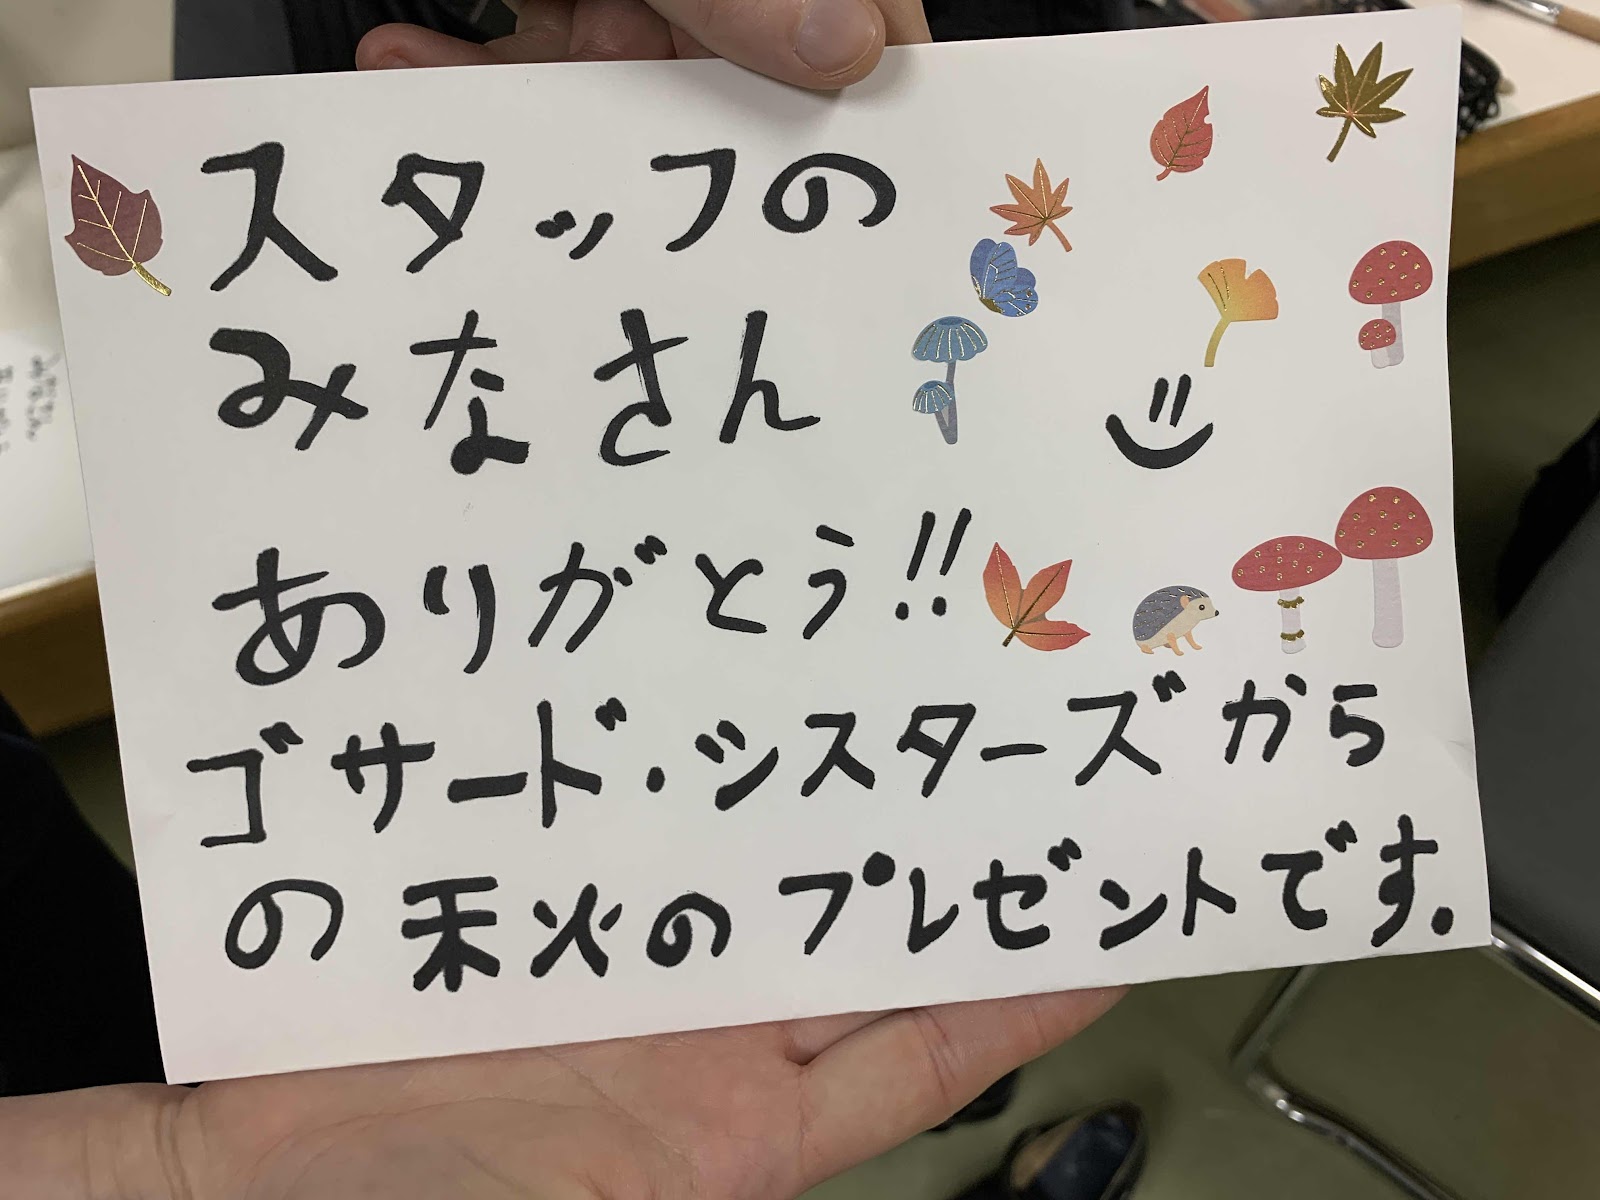 スタッフの
みなさん
ありがとう!!
ゴサード・シスターズから
の 禾火のプレゼントです.